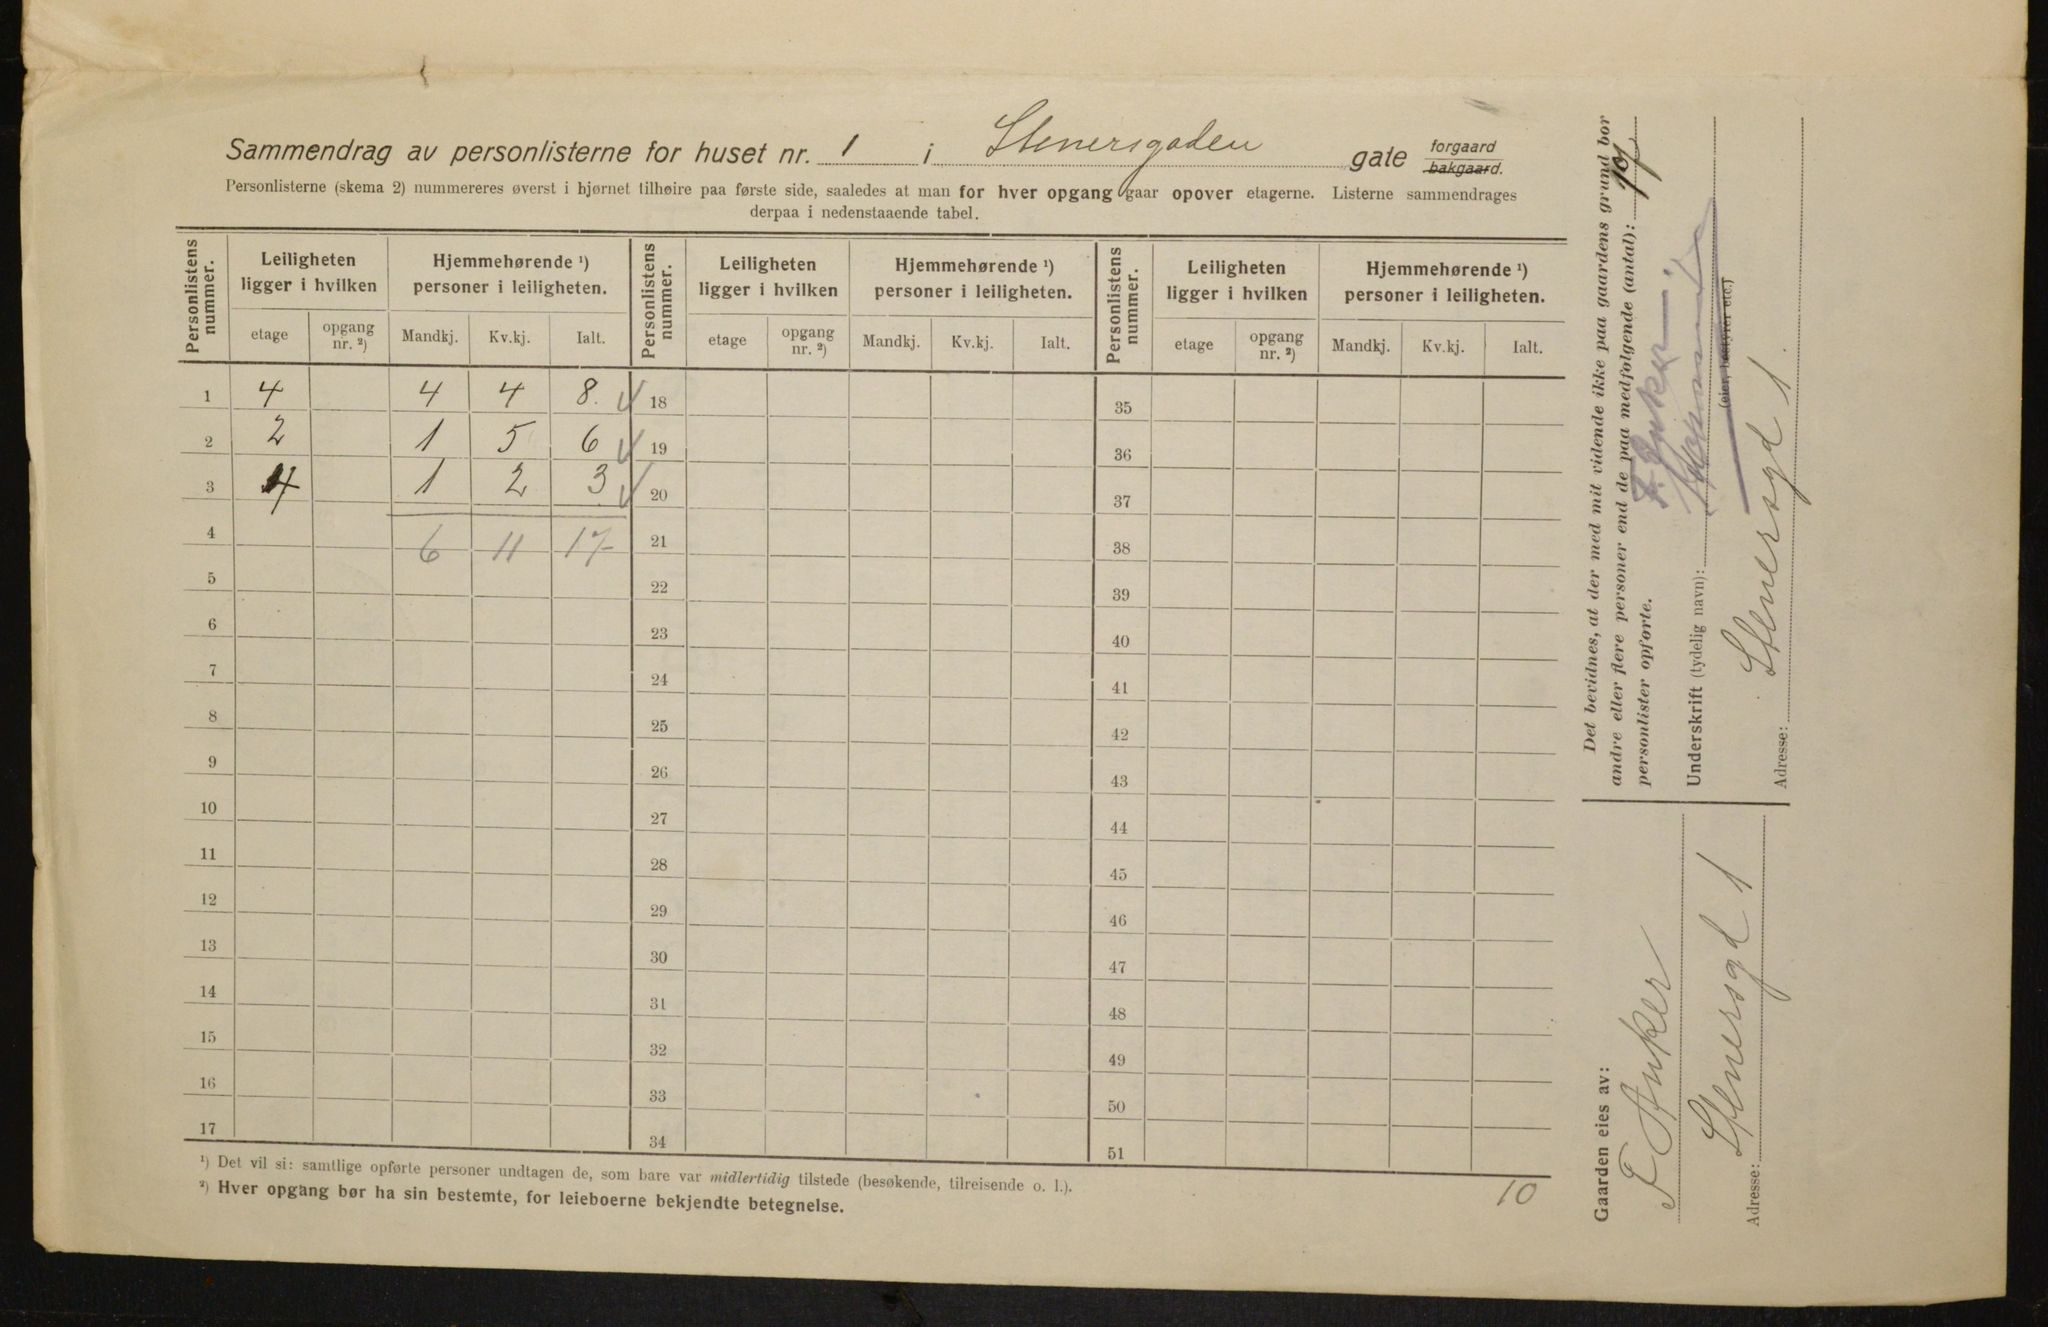 Sammendrag av personlisterne for huset nr. 1 i Stenersgaden gate forgaard bakgaard.
Personlisterne (skema 2) nummereres øverst i hjørnet tilhøire paa første side, saaledes at man for hver opgang gaar opover etagerne. Listerne sammendrages
derpaa i nedenstaaende tabel.
Personlistens nummer. Leiligheten ligger i hvilken Hjemmehørende ¹) personer i leiligheten. Personlistens nummer. Leiligheten ligger i hvilken Hjemmehørende ¹) personer i leiligheten. Personlistens nummer. Leiligheten ligger i hvilken Hjemmehørende ¹) personer i leiligheten.
etage opgang nr. ²) Mandkj. Kv.kj. Ialt. etage opgang nr. ²) Mandkj. Kv.kj. Ialt. etage opgang nr. ²) Mandkj. Kv.kj. Ialt.
1 4 4 4 8. 18 35
2 2 1 5 6 19 36
3 4 1 2 3 20 37
4 6 11 17 21 38
5 22 39
6 23 40
7 24 41
8 25 42
9 26 43
10 27 44
11 28 45
12 29 46
13 30 47
14 31 48
15 32 49
16 33 50
17 34 51
¹) Det vil si: samtlige opførte personer undtagen de, som bare var midlertidig tilstede (besøkende, tilreisende o. l.).
²) Hver opgang bør ha sin bestemte, for leieboerne bekjendte betegnelse.
10
Det bevidnes, at der med mit vidende ikke paa gaardens grund bor
andre eller flere personer end de paa medfølgende (antal):
personlister opførte.
F. Anker
Underskrift (tydelig navn):
(eier, bestyrer etc.)
Stenersgd 1.
Adresse:
Gaarden eies av:
F Anker
Stenersgd 1
Adresse: